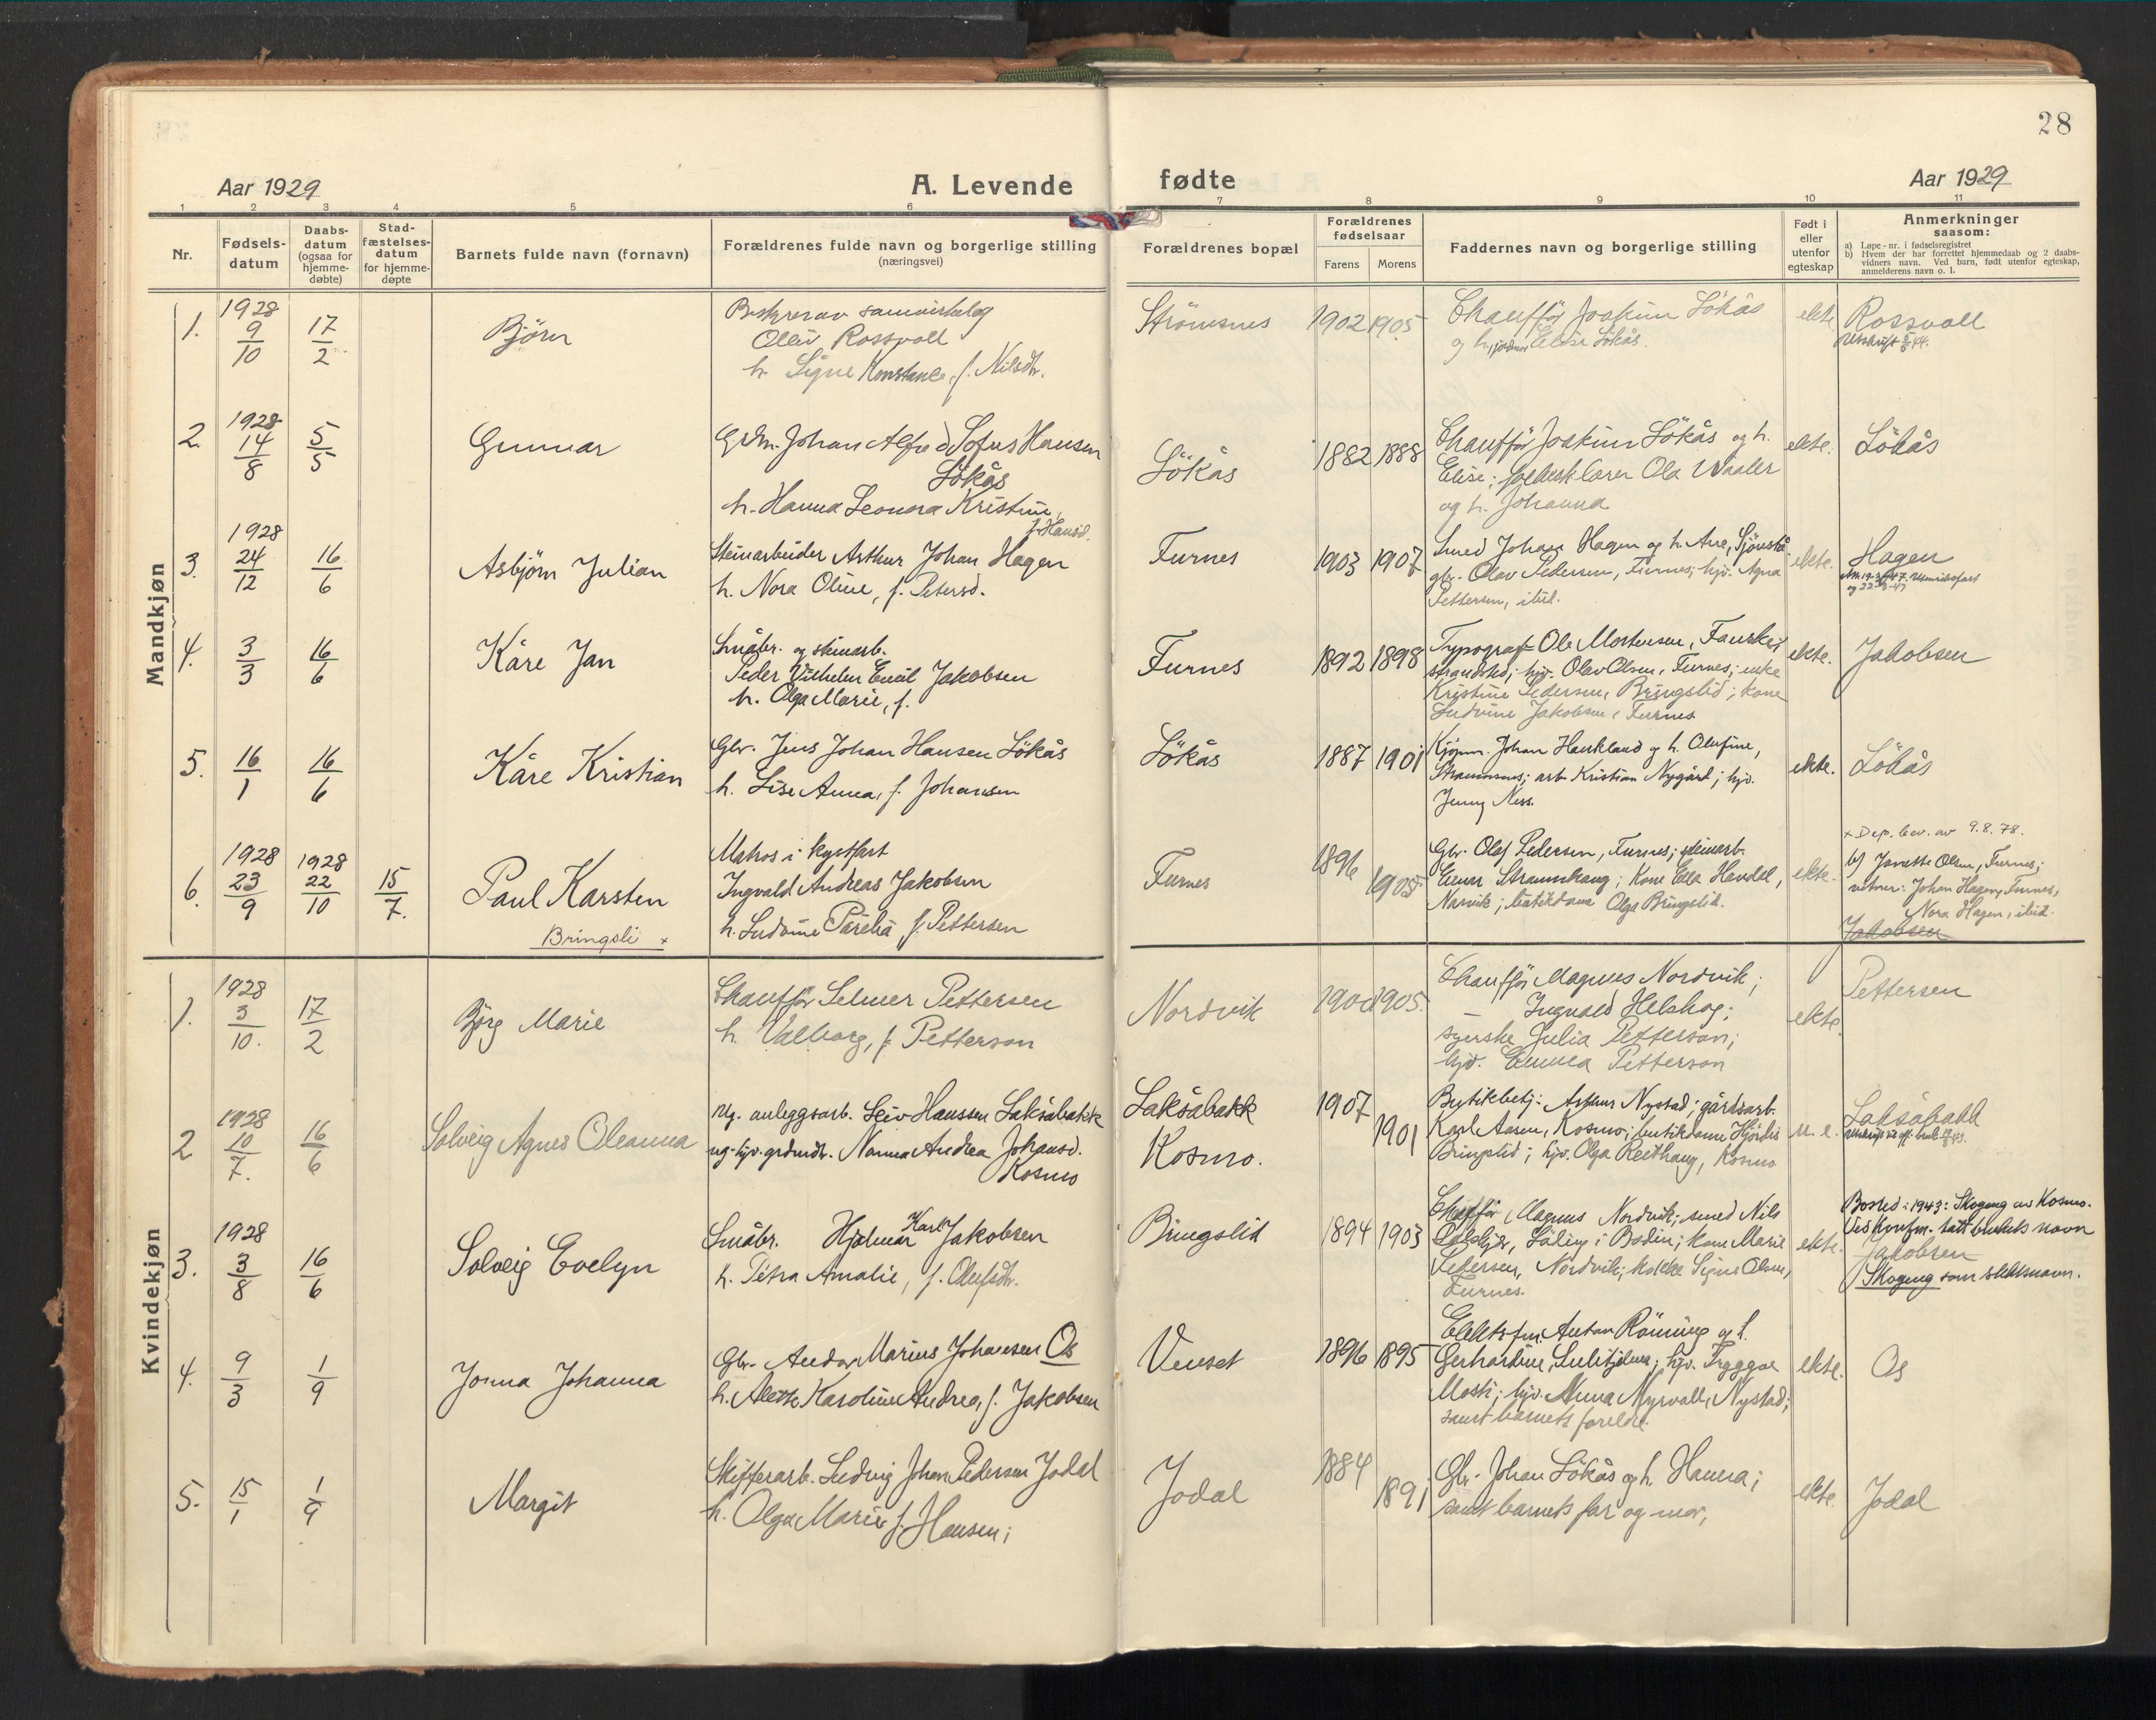 28
Aar 1929
A. Levende
fødte
Aar 1929
1 2 3 4 5 6 7 8 9 10 11
Nr.
Fødsels-
datum
Daabs-
datum
(ogsaa for
hjemme-
døbte)
Stad-
fæstelses-
datum
for hjemme-
døpte
Barnets fulde navn (fornavn)
Forældrenes fulde navn og borgerlige stilling
(næringsvei)
Forældrenes bopæl
Forældrenes
fødselsaar
Farens
Morens
Faddernes navn og borgerlige stilling
Født i
eller
utenfor
egteskap
Anmerkninger
saasom:
a) Løpe-nr. i fødselsregistret
b) Hvem der har forrettet hjemmedaab og 2 daabs-
vidners navn. Ved barn, født utenfor egteskap,
anmelderens navn o. l.
Mandkjøn
1.
1928
9/10
17/2
Bjørn
Bestyrer av samvirkelag
Oliv Rossvoll
h. Signe Konstance, f. Nilsdtr.
Strømsnes
1902 1905
Chauffør Joakim Løkås
og h. Elise Løkås.
ekte
Rossvoll
Utskrift 44.
2.
1928
14/8
5/5
Gunnar
Grdm. Johan Alfred Sofus Hansen
Løkås
h. Hanna Leonora Kristine,
f. Hansd.
Løkås
1882 1888
Chauffør Joakim Løkås og h.
Elise; Ola Waaler
og h. Johanna
ekte.
Løkås
3.
1928
24/12
16/6
Asbjørn Julian
Steinarbeider Arthur Johan Hagen
h. Nora Oline, f. Petersd.
Furnes
1903 1907
Smed Johan Hagen og h. Ane, Sjønstå
gbr. Olav Pedersen, Furnes; hjv. Agna
Pettersen, ibid.
ekte.
Hagen
4.
3/3
16/6
Kåre Jan
Småbr. og steinarb.
Peder Vilhelm Emil Jakobsen
h. Olga Marie, f.
Furnes
1892 1898
Typograf Ole Mortensen, Fauske
strandsted; hjv. Olav Olsen, Furnes; enke
Kristine Pedersen, Bringslid; kone
Ludvine Jakobsen, Furnes
ekte.
Jakobsen
5.
16/1
16/6
Kåre Kristian
Gbr. Jens Johan Hansen Løkås
h. Lise Anna, f. Johansen
Løkås
1887 1901
Kjøpm. Johan Haukland og h. Olufine,
Strømsnes; arb. Kristian Nygård; hjv.
Jenny Ness.
ekte.
Løkås
6.
1928
23/9
1928
22/10
15/7.
Paul Karsten
Bringsli x
Matros i kystfart
Ingvald Andreas Jakobsen
h. Ludvine Parelia f. Pettersen
Furnes
1896 1905
Gbr. Olaf Pedersen, Furnes; steinarb.
Einar Straumhaug; kone Ella Havdal,
Narvik; butikdame Olga Bringslid.
ekte.
x Dep. bev. av 9.8.78.
b) Janette Olsen, Furnes;
vitner: Johan Hagen, Furnes,
Nora Hagen, ibid.
Jakobsen
Kvindekjøn
1.
1928
3/10.
17/2
Bjørg Marie
Chauffør Selmer Pettersen
h. Valborg, f. Petterson
Nordvik
1900 1905.
Chauffør Magnus Nordvik;
Ingvald Helskog;
syerske Julia Petterson;
hjv. Emma Petterson
ekte.
Pettersen
2
1928
10/7.
16/6
Solveig Agnes Oleanna
Ug. anleggsarb. Leiv Hanssen Laksåbakk
ug. hjv. grdmdtr. Nanna Andrea Johansd.
Kosmo
Laksåbakk
Kosmo.
1907
1901
Butikbetj. Arthur Nystad; gårdsarb.
Karl Aasen, Kosmo; butikdame Hjørdis
Bringslid; hjv. Olga Reithaug, Kosmo
u. e.
Laksåbakk
3.
1928
3/8
16/6
Solveig Evelyn
Småbr. Hjalmar Karl Jakobsen
h. Petra Amalie, f. Olufsdtr.
Bringslid
1894 1903
Chauffør Magnus Nordvik; smed Nils
Løding i Bodin; kone Marie
Pedersen, Nordvik; kokke Signe Olsen,
Furnes.
ekte.
Bosted: 1943: Skogeng av Kosmo.
Ved konfm. tatt brukets navn
Jakobsen
Skogeng som slektsnavn.
4.
9/3
1/9
Jonna Johanna
Gbr. Andor Marius Johansen Os
h. Aleth Karoline Andrea, f. Jakobsen
Venset
1896 1895
Elektr.fm. Anton Rønning og h.
Gerhardine, Sulitjelma; hjv. Tryggve
Mosti; hjv. Anna Myrvoll, Nystad;
samt barnets foreldre.
ekte.
Os
5.
15/1
1/9
Margit
Skifferarb. Ludvig Johan Pedersen Jodal
h. Olga Marie f. Hansen;
Jodal
1884
1891
Gbr. Johan Løkås og h. Hanna;
samt barnets far og mor,
ekte.
Jodal